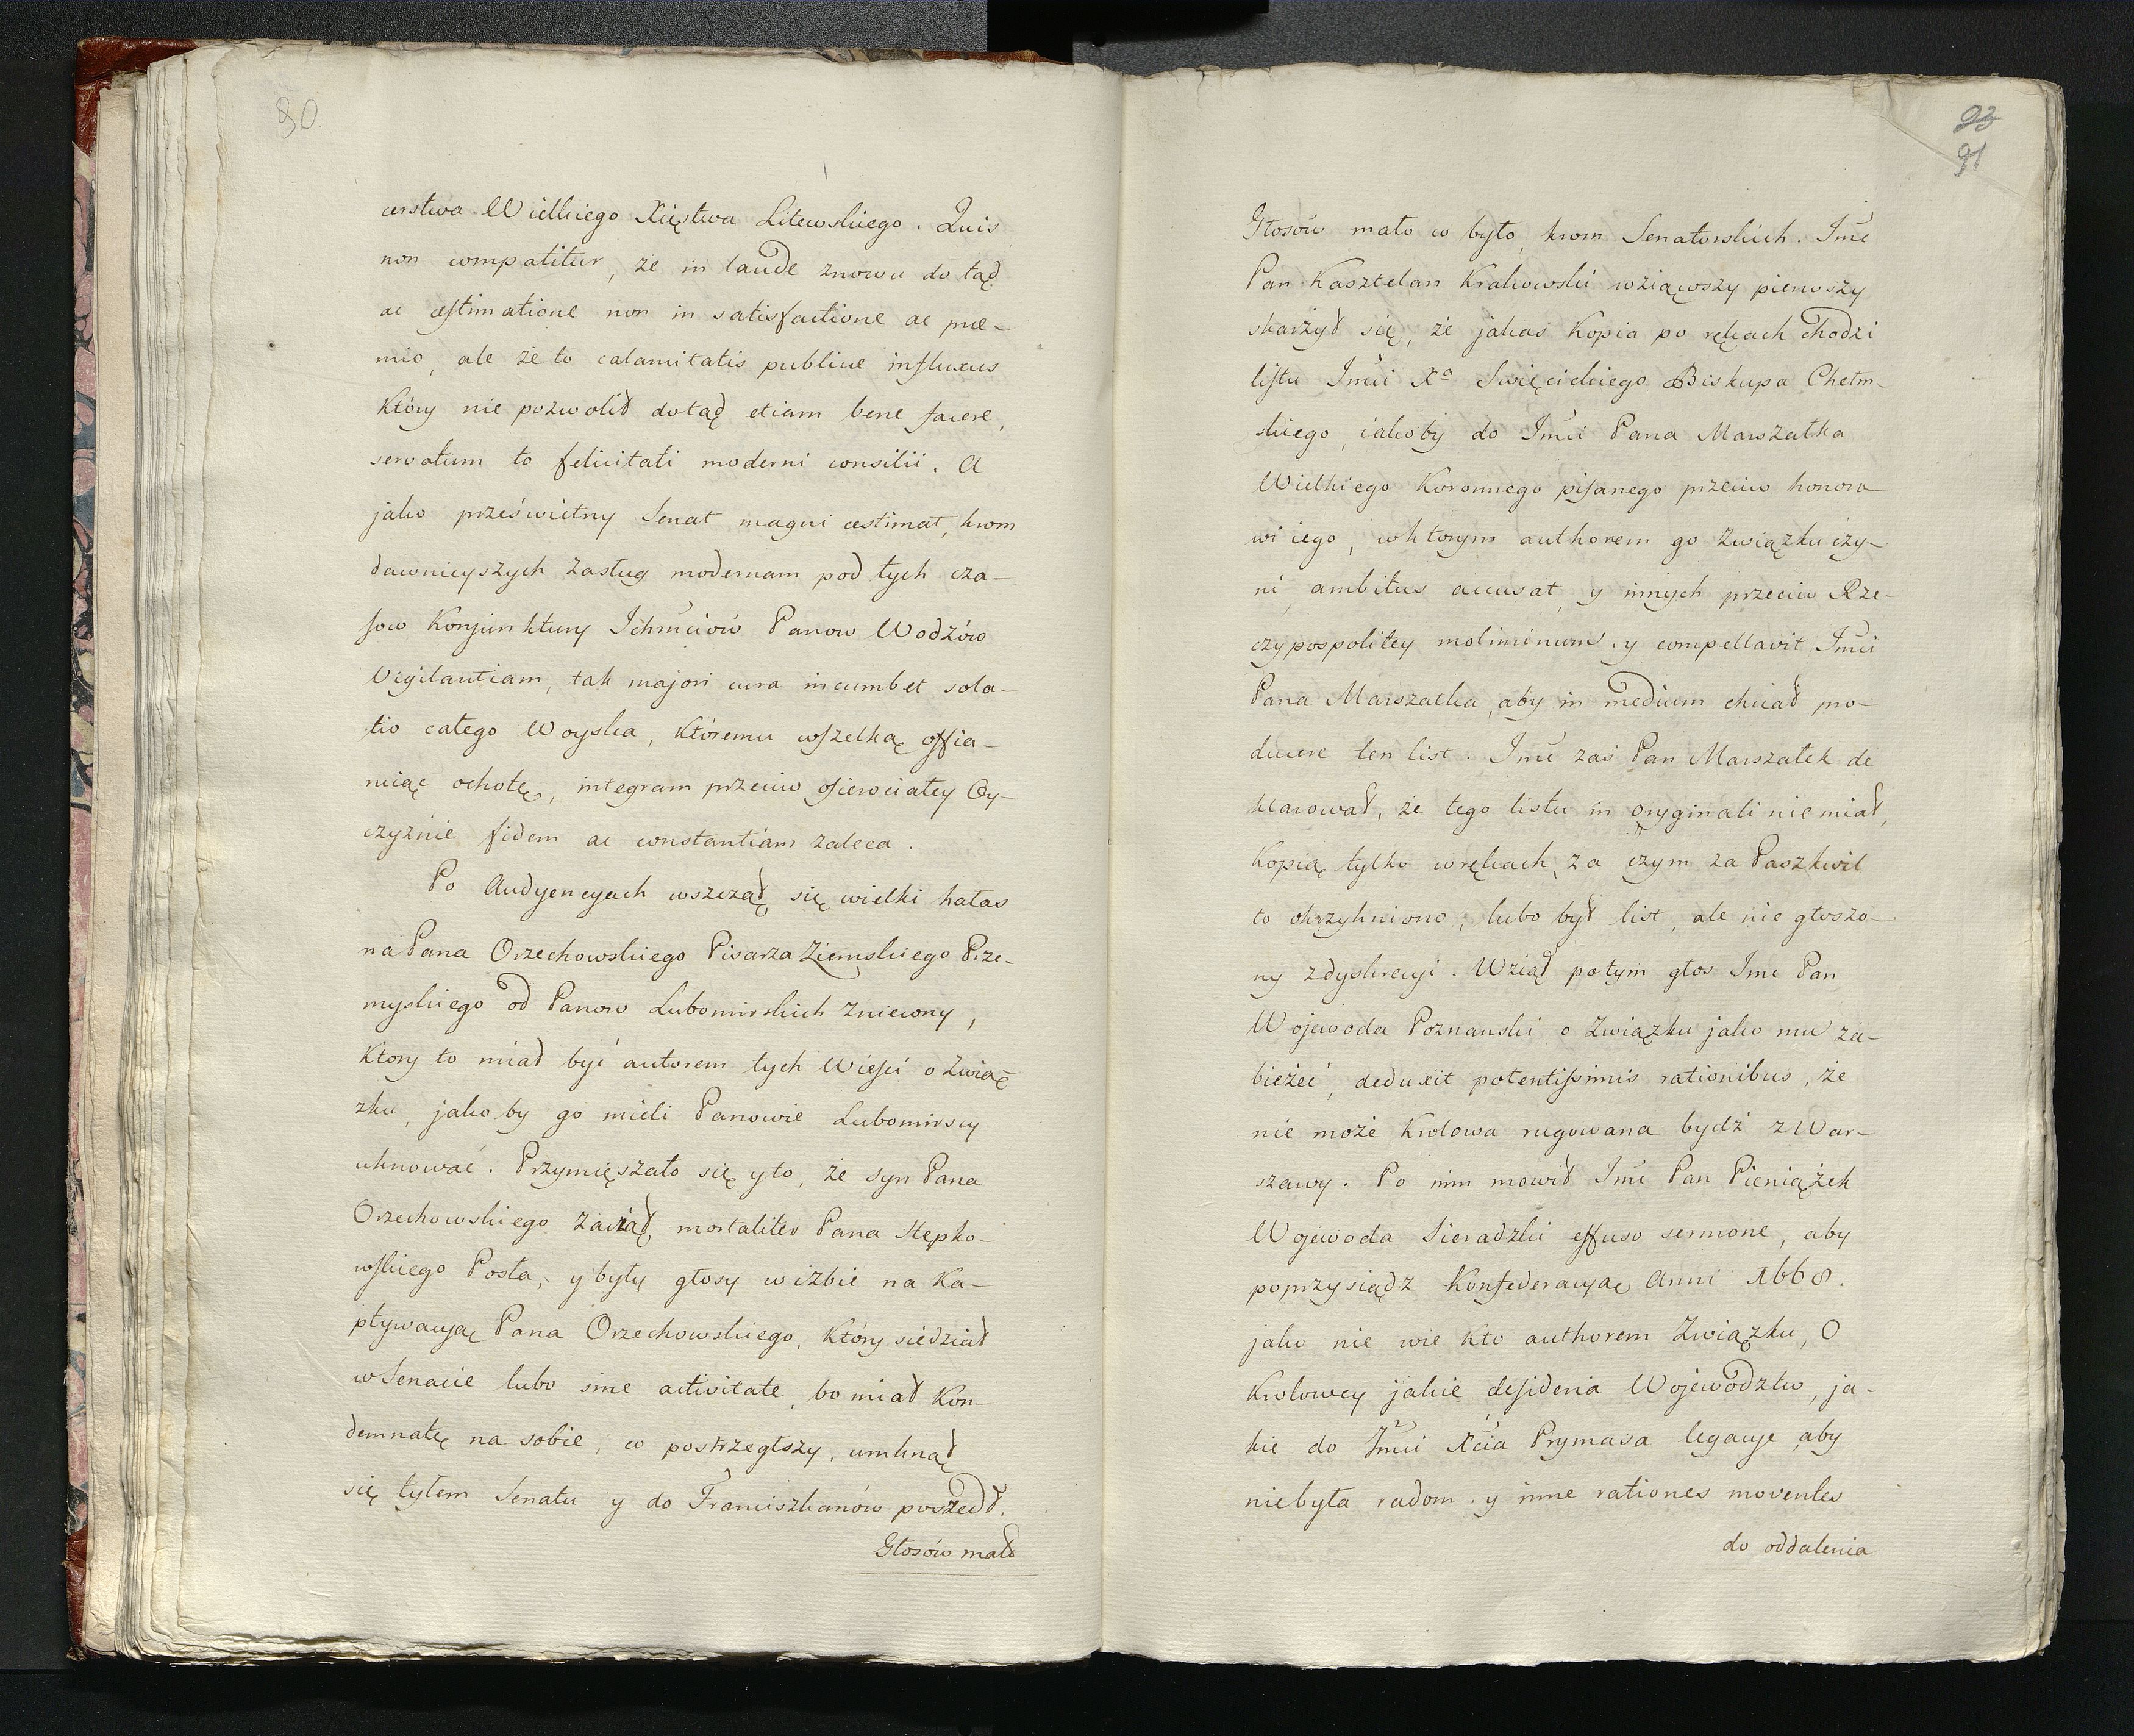 90
cerstwa Wielkiego Xięstwa Litewskiego. Quis
non compatitur, że in laude znowu do tąd
ac æstimatione non in satisfactione ac præ-
mio, ale że to calamitatis publicæ influxus
Który nie pozwolił dotąd etiam bene facere,
servatum to felicitati moderni consilii. A
jako prześwietny Senat magni æstimat, krom
dawnieyszych zasług modernam pod tych cza-
sow Konjunktury Ichmciów Panow Wodzów
Vigilantiam, tak majori cura incumbet sola-
tio całego Woyska, któremu wszelką offia-
ruiąc ochotę, integram przeciw osierociałey Oy-
czyznie fidem ac constantiam zaleca.
Po Audyencyach wszczął się wielki hałas
na Pana Orzechowskiego Pisarza Ziemskiego Prze-
myskiego od Panow Lubomirskich zniewony,
Ktory to miał być autorem tych Wieści o Zwią-
zku, jakoby go mieli Panowie Lubomirscy
uknować. Przymięszało się y to, że syn Pana
Orzechowskiego zaciął mortaliter Pana Stępko-
wskiego Posła, y były głosy w izbie na Ka-
ptywacyą Pana Orzechowskiego, Który siedział
w Senacie lubo sine activitate, bo miał Kon-
demnatę na sobie, co postrzegłszy, umknął
się tyłem Senatu y do Franciszkanów poszedł.
Głosów mało
93
91
Głosów mało co było, krom Senatorskich. Jmć
Pan Kasztelan Krakowski wziąwszy pierwszy
skarżył się, że jakaś Kopia po rękach chodzi
listu Jmci Xa Swięcickiego Biskupa Chełm-
skiego, iakoby do Jmci Pana Marszałka
Wielkiego Koronnego pisanego przeciw honoro-
wi iego, w którym authorem go Związku czy-
ni, ambitus accusat, y innych przeciw Rze-
czypospolitey moliminum. y compellavit Jmci
Pana Marszałka, aby in medium chciał pro-
ducere ten list. Jmć zaś Pan Marszałek de
klarował, że tego listu in oryginali nie miał,
Kopią tylko w rękach, za czym za Paszkwil
to okrzykniono; lubo był list, ale nie głoszo-
ny z dyskrecyi. Wziął potym głos Jmć Pan
Wojewoda Poznanski o Związku jako mu za-
bieżeć, deduxit potentissimis rationibus, że
nie może Krolowa rugowana bydź z War-
szawy. Po nim mowił Jmć Pan Pieniążek
Wojewoda Sieradzki effuso sermone, aby
poprzysiądz Konfederacyą Anni 1668.
jako nie wie kto authorem Związku, O
Krolowey jakie desideria Wojewodztw, ja-
kie do Jmci Xcia Prymasa legacye, aby
niebyła radom. y inne rationes moventes
do oddalenia